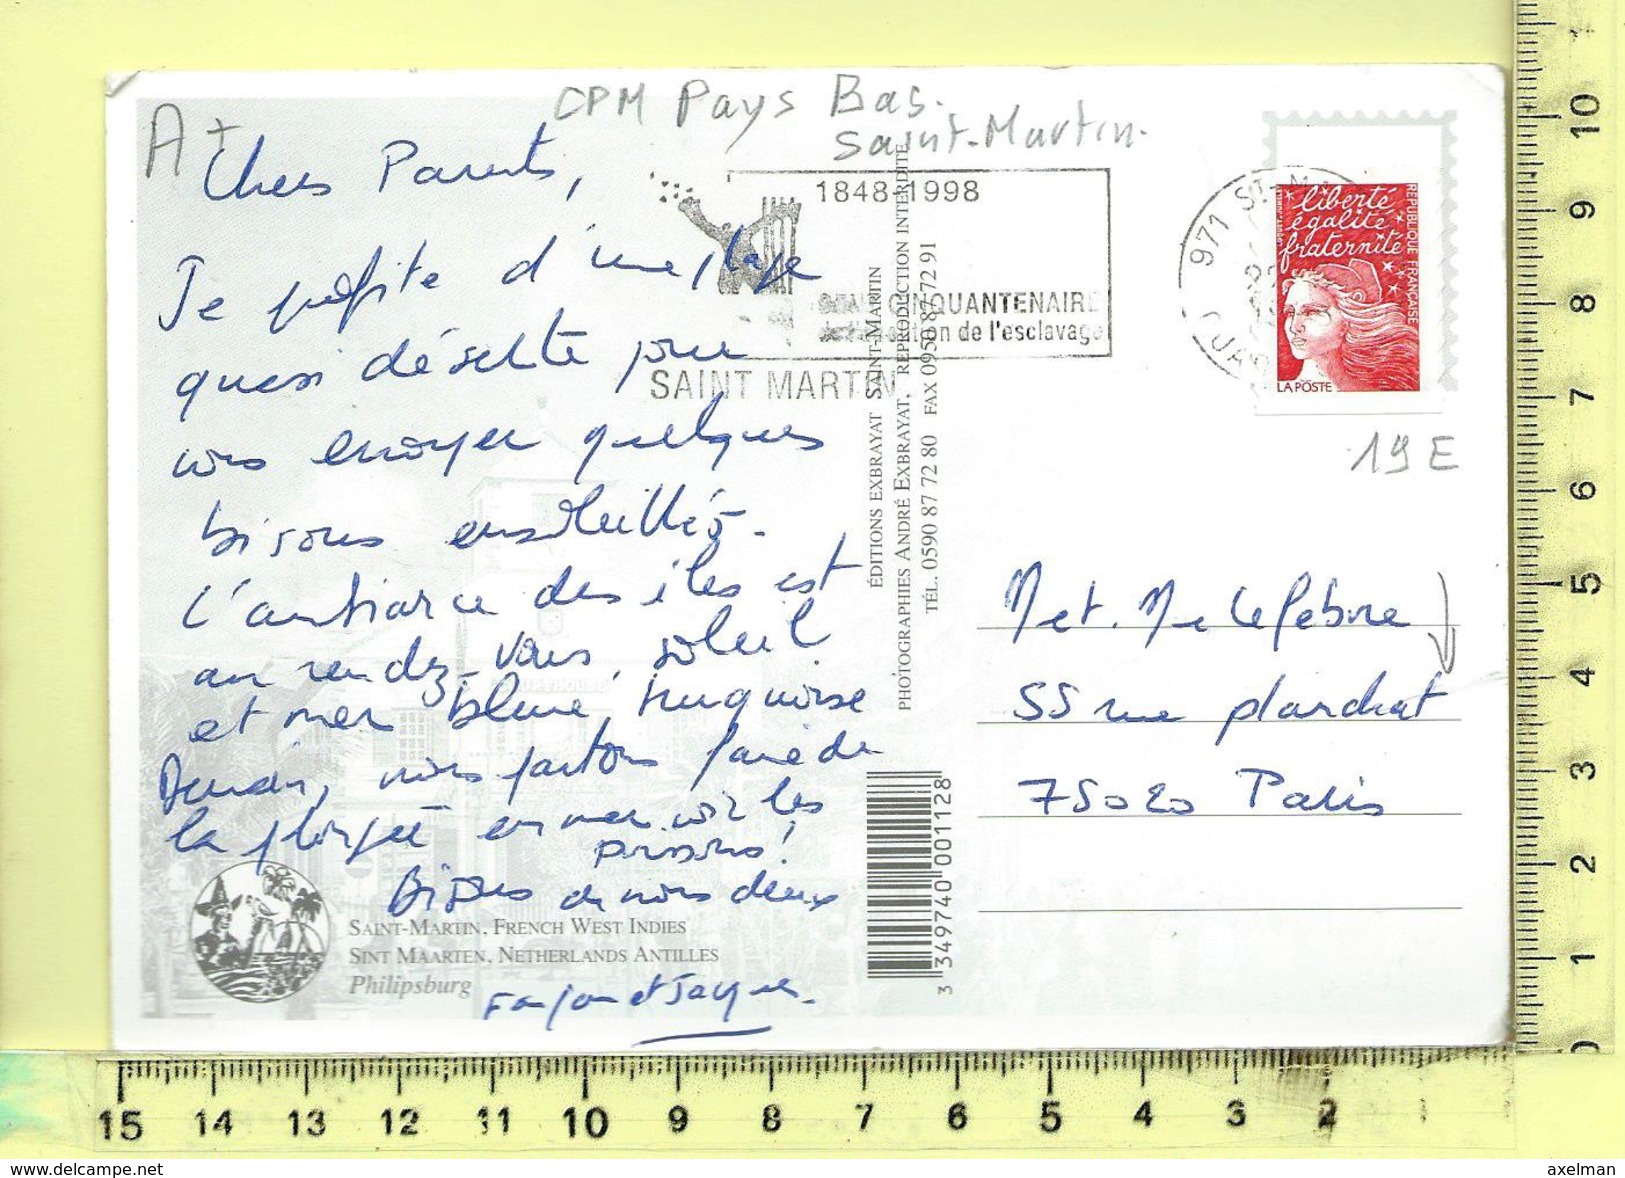 CPM Pays Bas.
Saint-Martin.
A+
Chers Parents,
Je profite d'une plage
quasi déserte pour
vous envoyer quelques
bisous ensoleillés.
L'ambiance des îles est
au rendez-vous, soleil
et mer bleue, turquoise
Demain, nous partons faire de
la plongée en mer voir les
poissons!
Bisous de nous deux
Fanfan et Jacques.
SAINT-MARTIN, FRENCH WEST INDIES
SINT MAARTEN, NETHERLANDS ANTILLES
Philipsburg
1848-1998
CINQUANTENAIRE
de l'esclavage
SAINT MARTIN
ÉDITIONS EXBRAYAT SAINT-MARTIN
PHOTOGRAPHIES ANDRÉ EXBRAYAT, REPRODUCTION INTERDITE
TÉL. 0590 87 72 80 FAX 0950 87 72 91
3 349740 001128
971 ST-M
liberté
égalité
fraternité
REPUBLIQUE FRANÇAISE
LA POSTE
19E
M et. Me Lefebvre
55 rue planchat
75020 Paris
10
9
8
7
6
5
4
3
2
1
0
15 14 13 12 11 10 9 8 7 6 5 4 3 2
www.delcampe.net
axelman